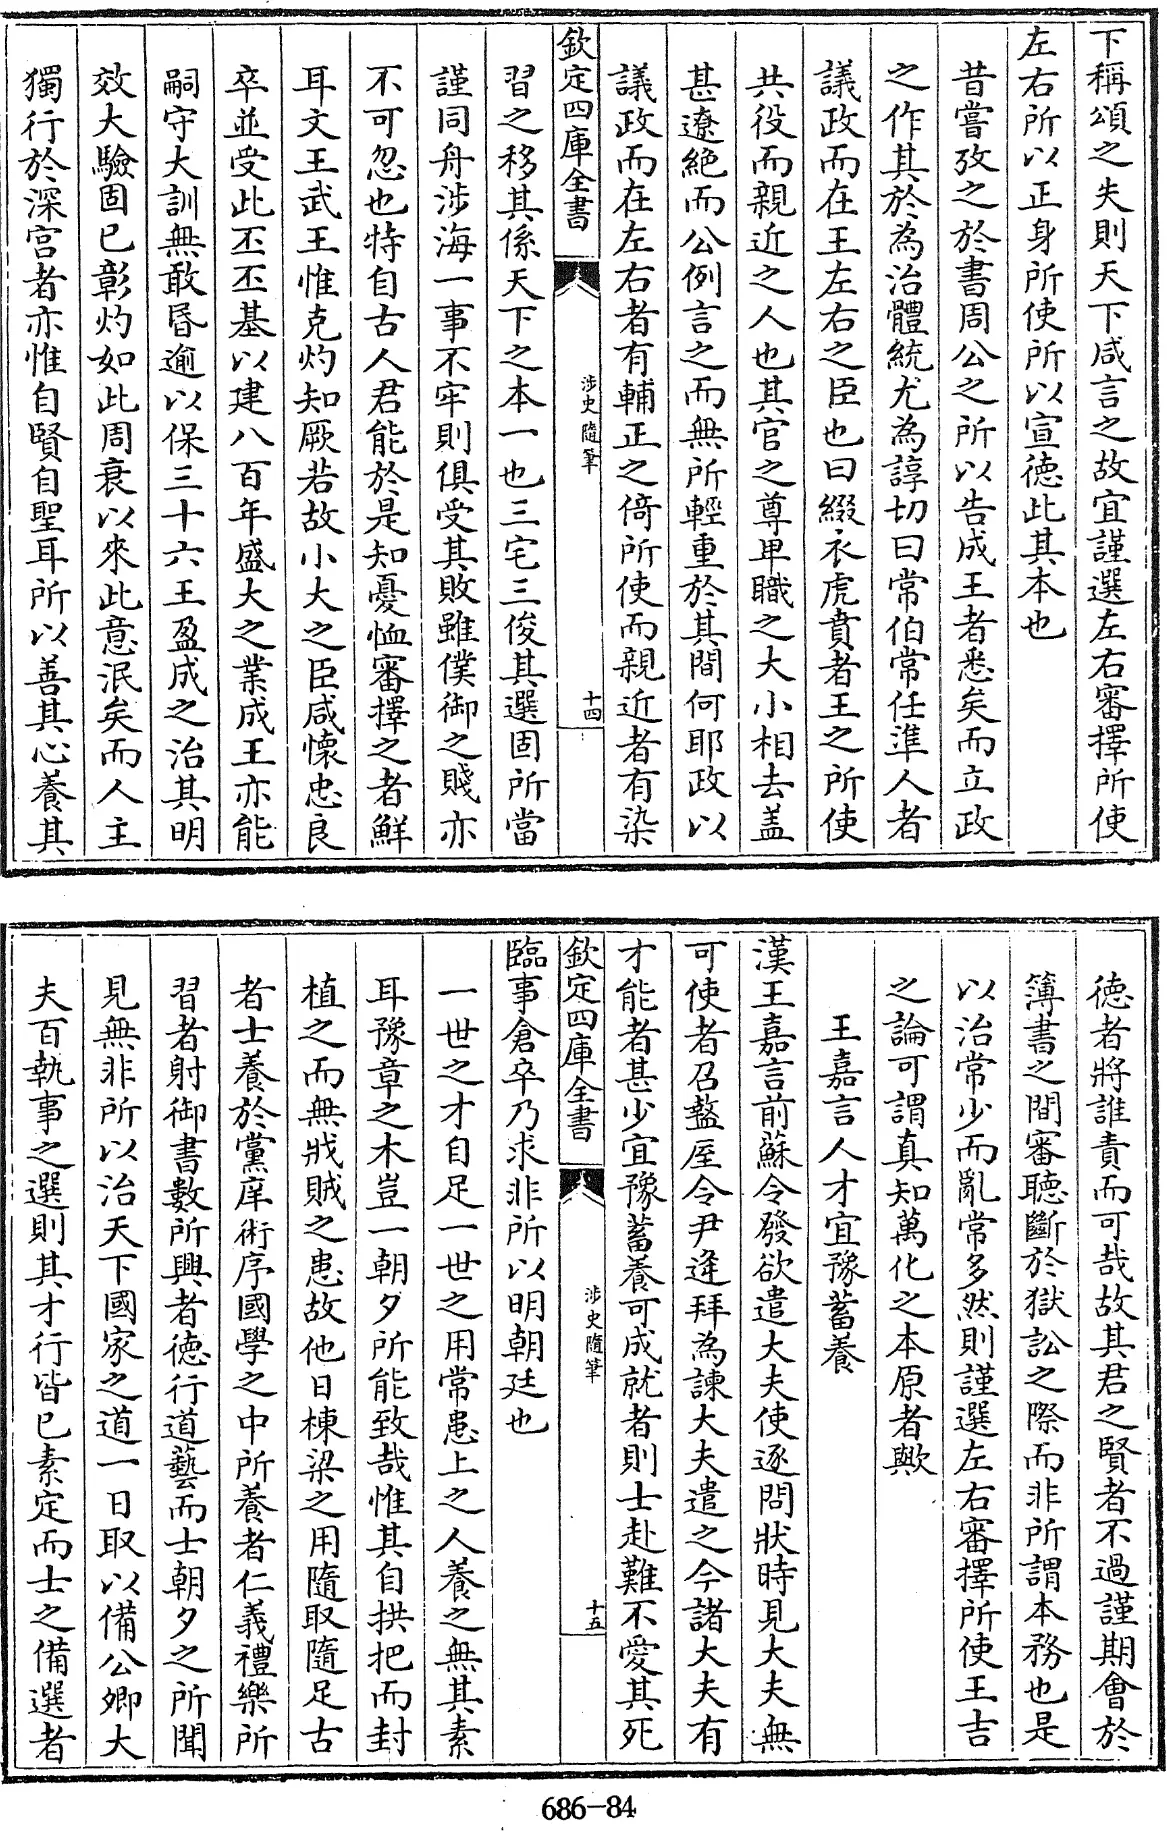 下稱頌之失則天下咸言之故宜謹選左右審擇所使
左右所以正身所使所以宣徳此其本也
昔嘗攷之於書周公之所以告成王者悉矣而立政
之作其於為治體統尤為諄切曰常伯常任準人者
議政而在王左右之臣也曰綴衣虎賁者王之所使
共役而親近之人也其官之尊卑職之大小相去盖
甚遼絶而公例言之而無所輕重於其間何耶政以
議政而在左右者有輔正之倚所使而親近者有染
欽定四庫全書
涉史隨筆
十四
習之移其係天下之本一也三宅三俊其選固所當
謹同舟涉海一事不牢則俱受其敗雖僕御之賤亦
不可忽也特自古人君能於是知憂恤審擇之者鮮
耳文王武王惟克灼知厥若故小大之臣咸懷忠良
卒並受此丕丕基以建八百年盛大之業成王亦能
嗣守大訓無敢昏逾以保三十六王盈成之治其明
效大驗固已彰灼如此周衰以來此意泯矣而人主
獨行於深宫者亦惟自賢自聖耳所以善其心養其
徳者將誰責而可哉故其君之賢者不過謹期會於
簿書之間審聴斷於獄訟之際而非所謂本務也是
以治常少而亂常多然則謹選左右審擇所使王吉
之論可謂真知萬化之本原者歟
王嘉言人才宜豫蓄養
漢王嘉言前蘇令發欲遣大夫使逐問狀時見大夫無
可使者召盩厔令尹逄拜為諫大夫遣之今諸大夫有
才能者甚少宜豫蓄養可成就者則士赴難不愛其死
欽定四庫全書
涉史隨筆
十五
臨事倉卒乃求非所以明朝廷也
一世之才自足一世之用常患上之人養之無其素
耳豫章之木豈一朝夕所能致哉惟其自拱把而封
植之而無戕賊之患故他日棟梁之用隨取隨足古
者士養於黨庠術序國學之中所養者仁義禮樂所
習者射御書數所興者徳行道藝而士朝夕之所聞
見無非所以治天下國家之道一日取以備公卿大
夫百執事之選則其才行皆已素定而士之備選者
686-84